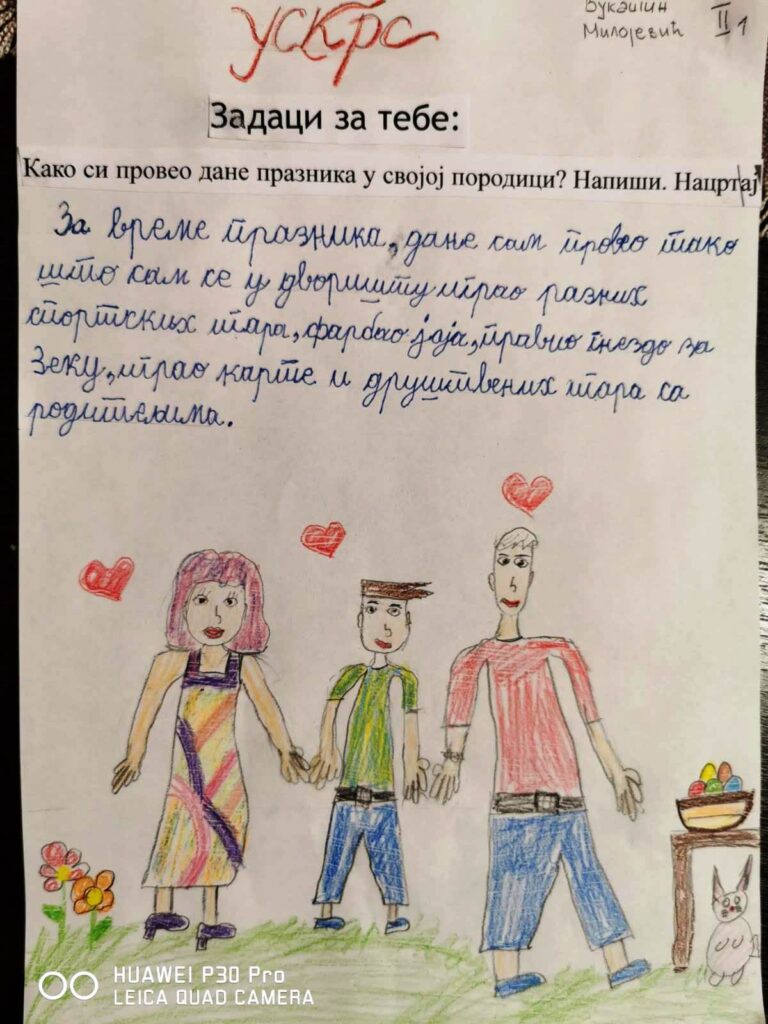 Ускрс
Вукашин
Милојевић II1
Задаци за тебе:
Како си провео дане празника у својој породици? Напиши. Нацртај
За време празника, дане сам провео тако
што сам се у дворишту играо разних
спортских игара, фарбао јаја, правио гнездо за
Зеку, играо карте и друштвених игара са
родитељима.
HUAWEI P30 Pro
LEICA QUAD CAMERA